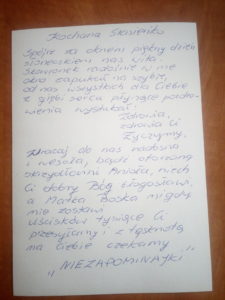 Kochana Sławenko
Spójrz za oknem piękny dzień
słoneczkiem nas wita.
Skowronek radośnie w nie
okno zapukał na szybie,
od nas wszystkich dla Ciebie
z głębi serca płynące pozdro-
wienia wystukał:
Zdrowia,
zdrowia Ci
życzymy.
Wracaj do nas radosna
i wesoła, bądź otoczona
skrzydłami Anioła, niech
Ci dobry Bóg błogosławi,
a Matka Boska nigdy
nie zostawi
Uścisków tysiące Ci
przesyłamy i z tęsknotą
na Ciebie czekamy
„NIEZAPOMINAJKI"